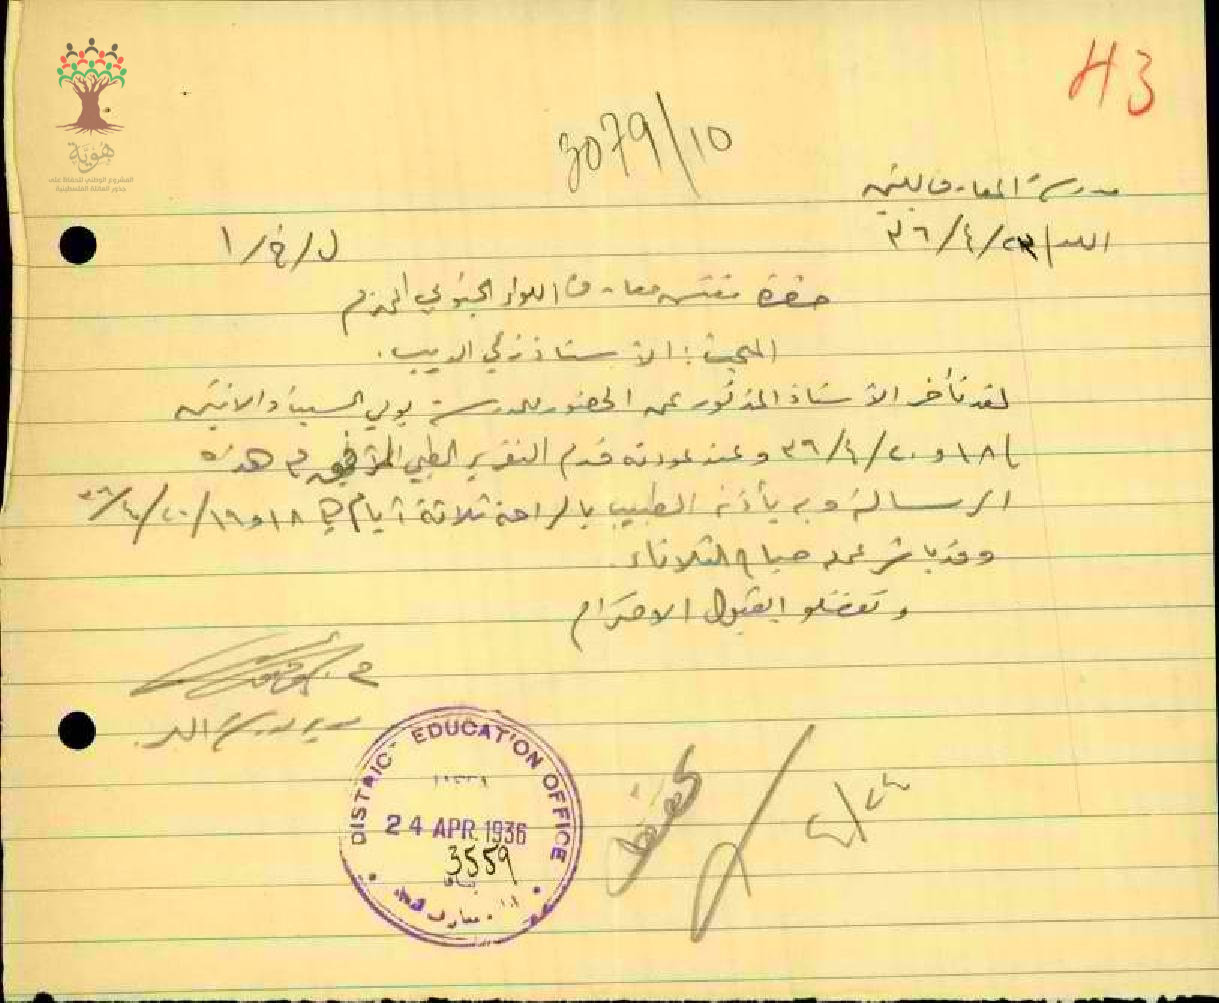 H3
3079/10
هوية
المشروع الوطني للحفاظ على
جذور العائلة الفلسطينية
مدرسة المعارف للبنين
اللد ٢٣/٤/٣٦
ل/خ/١
حضرة مفتش معارف اللواء الجنوبي المحترم
المبحث: الأستاذ زكي الديب.
لقد تأخر الأستاذ المذكور عن الحضور للمدرسة يومي السبت والاثنين
١٨ و ٢٠/٤/٣٦ وعند عودته قدم التقرير الطبي المرفق مع هذه
الرسالة وبه يأذن الطبيب بالراحة ثلاثة أيام في ١٨ و ١٩/٢٠/٤/٣٦
وقد باشر عمله صباح الثلاثاء.
وتفضلوا بقبول الاحترام
مدير مدرسة اللد.
DISTRICT EDUCATION OFFICE
24 APR. 1936
3559
يافا
يحفظ